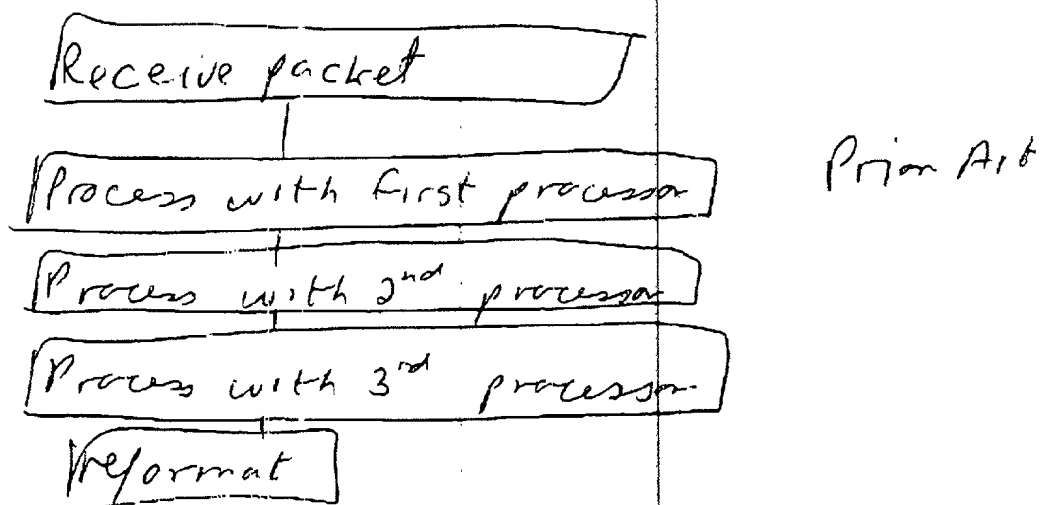 Receive packet
Process with first processor
Prior Art
Process with 2nd processor
Process with 3rd processor
reformat